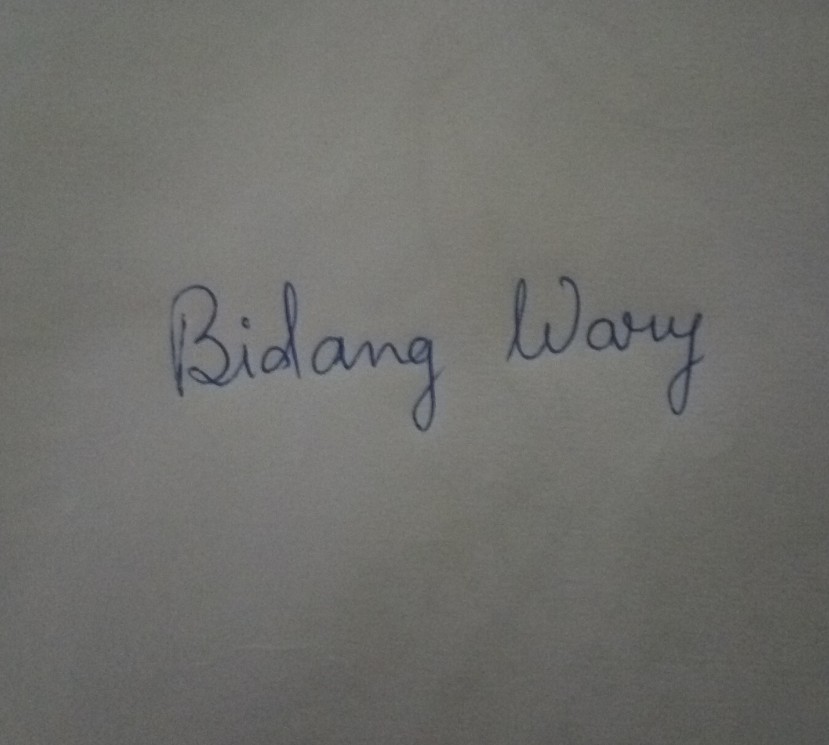 Bidang Wary